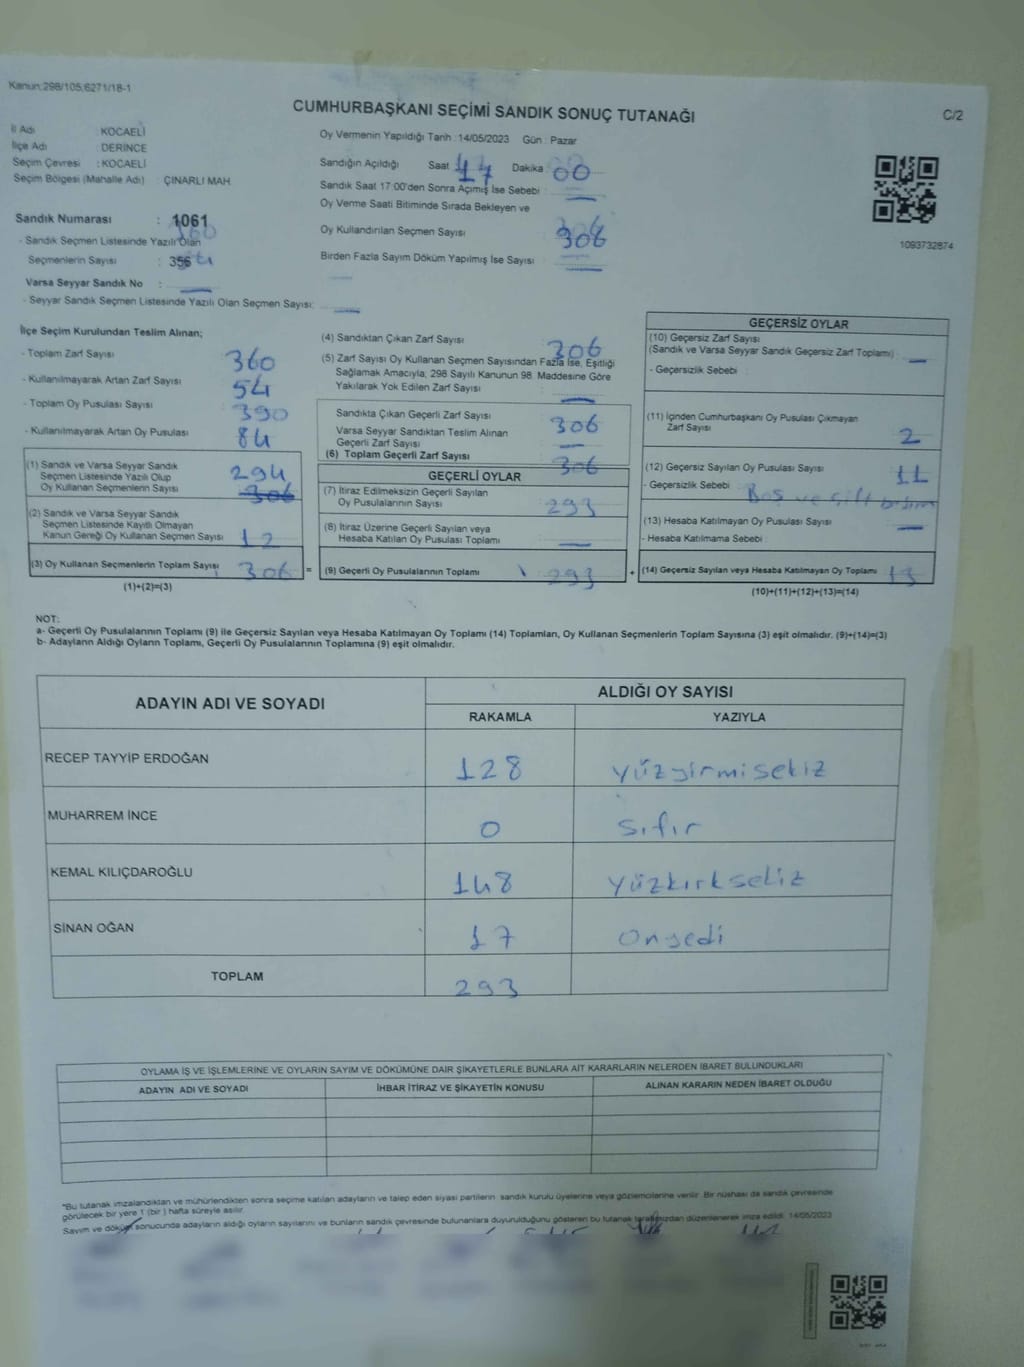 Kanun:298/105,6271/18-1
CUMHURBAŞKANI SEÇİMİ SANDIK SONUÇ TUTANAĞI
C/2
İl Adı KOCAELİ
İlçe Adı DERİNCE
Seçim Çevresi : KOCAELİ
Seçim Bölgesi (Mahalle Adı) : ÇINARLI MAH.
Oy Vermenin Yapıldığı Tarih : 14/05/2023 Gün : Pazar
Sandığın Açıldığı Saat 17 Dakika 00
Sandık Saat 17:00'den Sonra Açımış İse Sebebi :
Oy Verme Saati Bitiminde Sırada Bekleyen ve
Oy Kullandırılan Seçmen Sayısı 306
Birden Fazla Sayım Döküm Yapılmış İse Sayısı :
1093732874
Sandık Numarası : 1061
- Sandık Seçmen Listesinde Yazılı Olan
Seçmenlerin Sayısı : 356
Varsa Seyyar Sandık No :
- Seyyar Sandık Seçmen Listesinde Yazılı Olan Seçmen Sayısı:
İlçe Seçim Kurulundan Teslim Alınan;
- Toplam Zarf Sayısı 360
- Kullanılmayarak Artan Zarf Sayısı 54
- Toplam Oy Pusulası Sayısı 390
- Kullanılmayarak Artan Oy Pusulası 84
(1) Sandık ve Varsa Seyyar Sandık
Seçmen Listesinde Yazılı Olup 294
Oy Kullanan Seçmenlerin Sayısı 306
(2) Sandık ve Varsa Seyyar Sandık
Seçmen Listesinde Kayıtlı Olmayan
Kanun Gereği Oy Kullanan Seçmen Sayısı 12
(3) Oy Kullanan Seçmenlerin Toplam Sayısı 306 =
(1)+(2)=(3)
(4) Sandıktan Çıkan Zarf Sayısı 306
(5) Zarf Sayısı Oy Kullanan Seçmen Sayısından Fazla İse, Eşitliği
Sağlamak Amacıyla, 298 Sayılı Kanunun 98. Maddesine Göre
Yakılarak Yok Edilen Zarf Sayısı :
Sandıkta Çıkan Geçerli Zarf Sayısı 306
Varsa Seyyar Sandıktan Teslim Alınan
Geçerli Zarf Sayısı
(6) Toplam Geçerli Zarf Sayısı 306
GEÇERLİ OYLAR
(7) İtiraz Edilmeksizin Geçerli Sayılan
Oy Pusulalarının Sayısı 293
(8) İtiraz Üzerine Geçerli Sayılan veya
Hesaba Katılan Oy Pusulası Toplamı
(9) Geçerli Oy Pusulalarının Toplamı 293 +
GEÇERSİZ OYLAR
(10) Geçersiz Zarf Sayısı
(Sandık ve Varsa Seyyar Sandık Geçersiz Zarf Toplamı) :
- Geçersizlik Sebebi :
(11) İçinden Cumhurbaşkanı Oy Pusulası Çıkmayan
Zarf Sayısı 2
(12) Geçersiz Sayılan Oy Pusulası Sayısı 11
- Geçersizlik Sebebi : Boş ve çift
(13) Hesaba Katılmayan Oy Pusulası Sayısı
- Hesaba Katılmama Sebebi :
(14) Geçersiz Sayılan veya Hesaba Katılmayan Oy Toplamı 13
(10)+(11)+(12)+(13)=(14)
NOT:
a- Geçerli Oy Pusulalarının Toplamı (9) ile Geçersiz Sayılan veya Hesaba Katılmayan Oy Toplamı (14) Toplamları, Oy Kullanan Seçmenlerin Toplam Sayısına (3) eşit olmalıdır. (9)+(14)=(3)
b- Adayların Aldığı Oyların Toplamı, Geçerli Oy Pusulalarının Toplamına (9) eşit olmalıdır.
ADAYIN ADI VE SOYADI
ALDIĞI OY SAYISI
RAKAMLA YAZIYLA
RECEP TAYYİP ERDOĞAN 128 yüzyirmisekiz
MUHARREM İNCE 0 sıfır
KEMAL KILIÇDAROĞLU 148 yüzkırksekiz
SİNAN OĞAN 17 onyedi
TOPLAM 293
OYLAMA İŞ VE İŞLEMLERİNE VE OYLARIN SAYIM VE DÖKÜMÜNE DAİR ŞİKAYETLERLE BUNLARA AİT KARARLARIN NELERDEN İBARET BULUNDUKLARI
ADAYIN ADI VE SOYADI İHBAR İTİRAZ VE ŞİKAYETİN KONUSU ALINAN KARARIN NEDEN İBARET OLDUĞU
"Bu tutanak imzalandıktan ve mühürlendikten sonra seçime katılan adayların ve talep eden siyasi partilerin sandık kurulu üyelerine veya gözlemcilerine verilir. Bir nüshası da sandık çevresinde
görülecek bir yere 1 (bir ) hafta süreyle asılır.
Sayım ve döküm sonucunda adayların aldığı oyların sayılarını ve bunların sandık çevresinde bulunanlara duyurulduğunu gösteren bu tutanak tarafımızdan düzenlenerek imza edildi. 14/05/2023